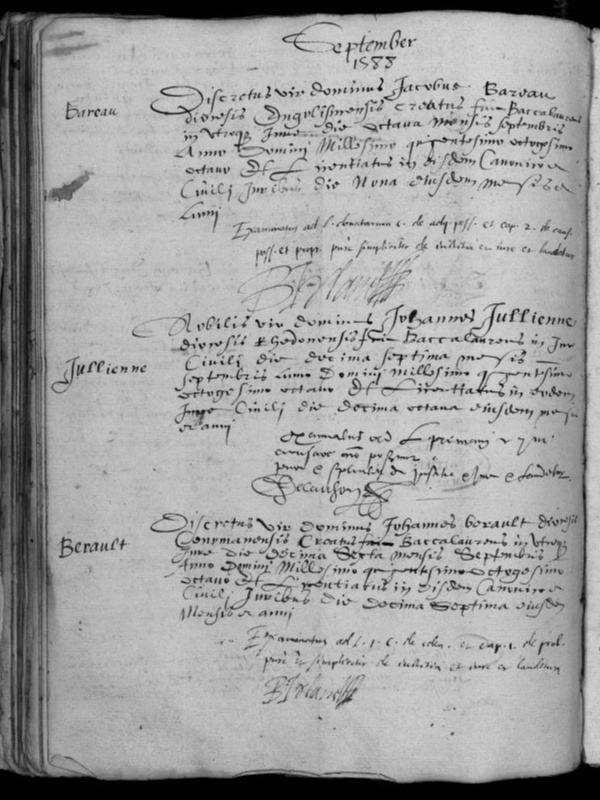 September
1588
Bareau
Discretus vir dominus Jacobus Bareau
diocesis Engolismensis Creatus fuit Baccalaureus
in Utroque Jure die octava mensis septembris
Anno Domini Millesimo quingentesimo octogesimo
octavo Et Licentiatus in eisdem Canonico et
Civili Juribus die Nona eiusdem mensis et
Anni
Examinatus ad l. C. de adq. poss. et cap. 2. de caus.
poss. et propr. pure simpliciter de iustitia et iure et laudetur
Jullienne
Nobilis vir dominus Johannes Jullienne
diocesis Rhedonensis fuit Baccalaureus in Jure
Civili die decima septima mensis
septembris Anno Domini Millesimo quingentesimo
octogesimo octavo Et Licentiatus in eodem
Jure Civili die decima octava eiusdem mensis
et anni
examinatus ad L
pure et simpliciter de justitia et jure et laudetur
Berault
Discretus vir dominus Johannes berault diocesis
Cenomanensis Creatus fuit Baccalaureus in Utroque
Jure die decima Sexta mensis Septembris
Anno Domini Millesimo quingentesimo octogesimo
octavo Et Licentiatus in eisdem Canonico et
Civili Juribus die decima Septima eiusdem
Mensis et anni
Examinatus ad l. 1. C. de et cap. 1. de prob.
pure et simpliciter de iustitia et iure et laudetur